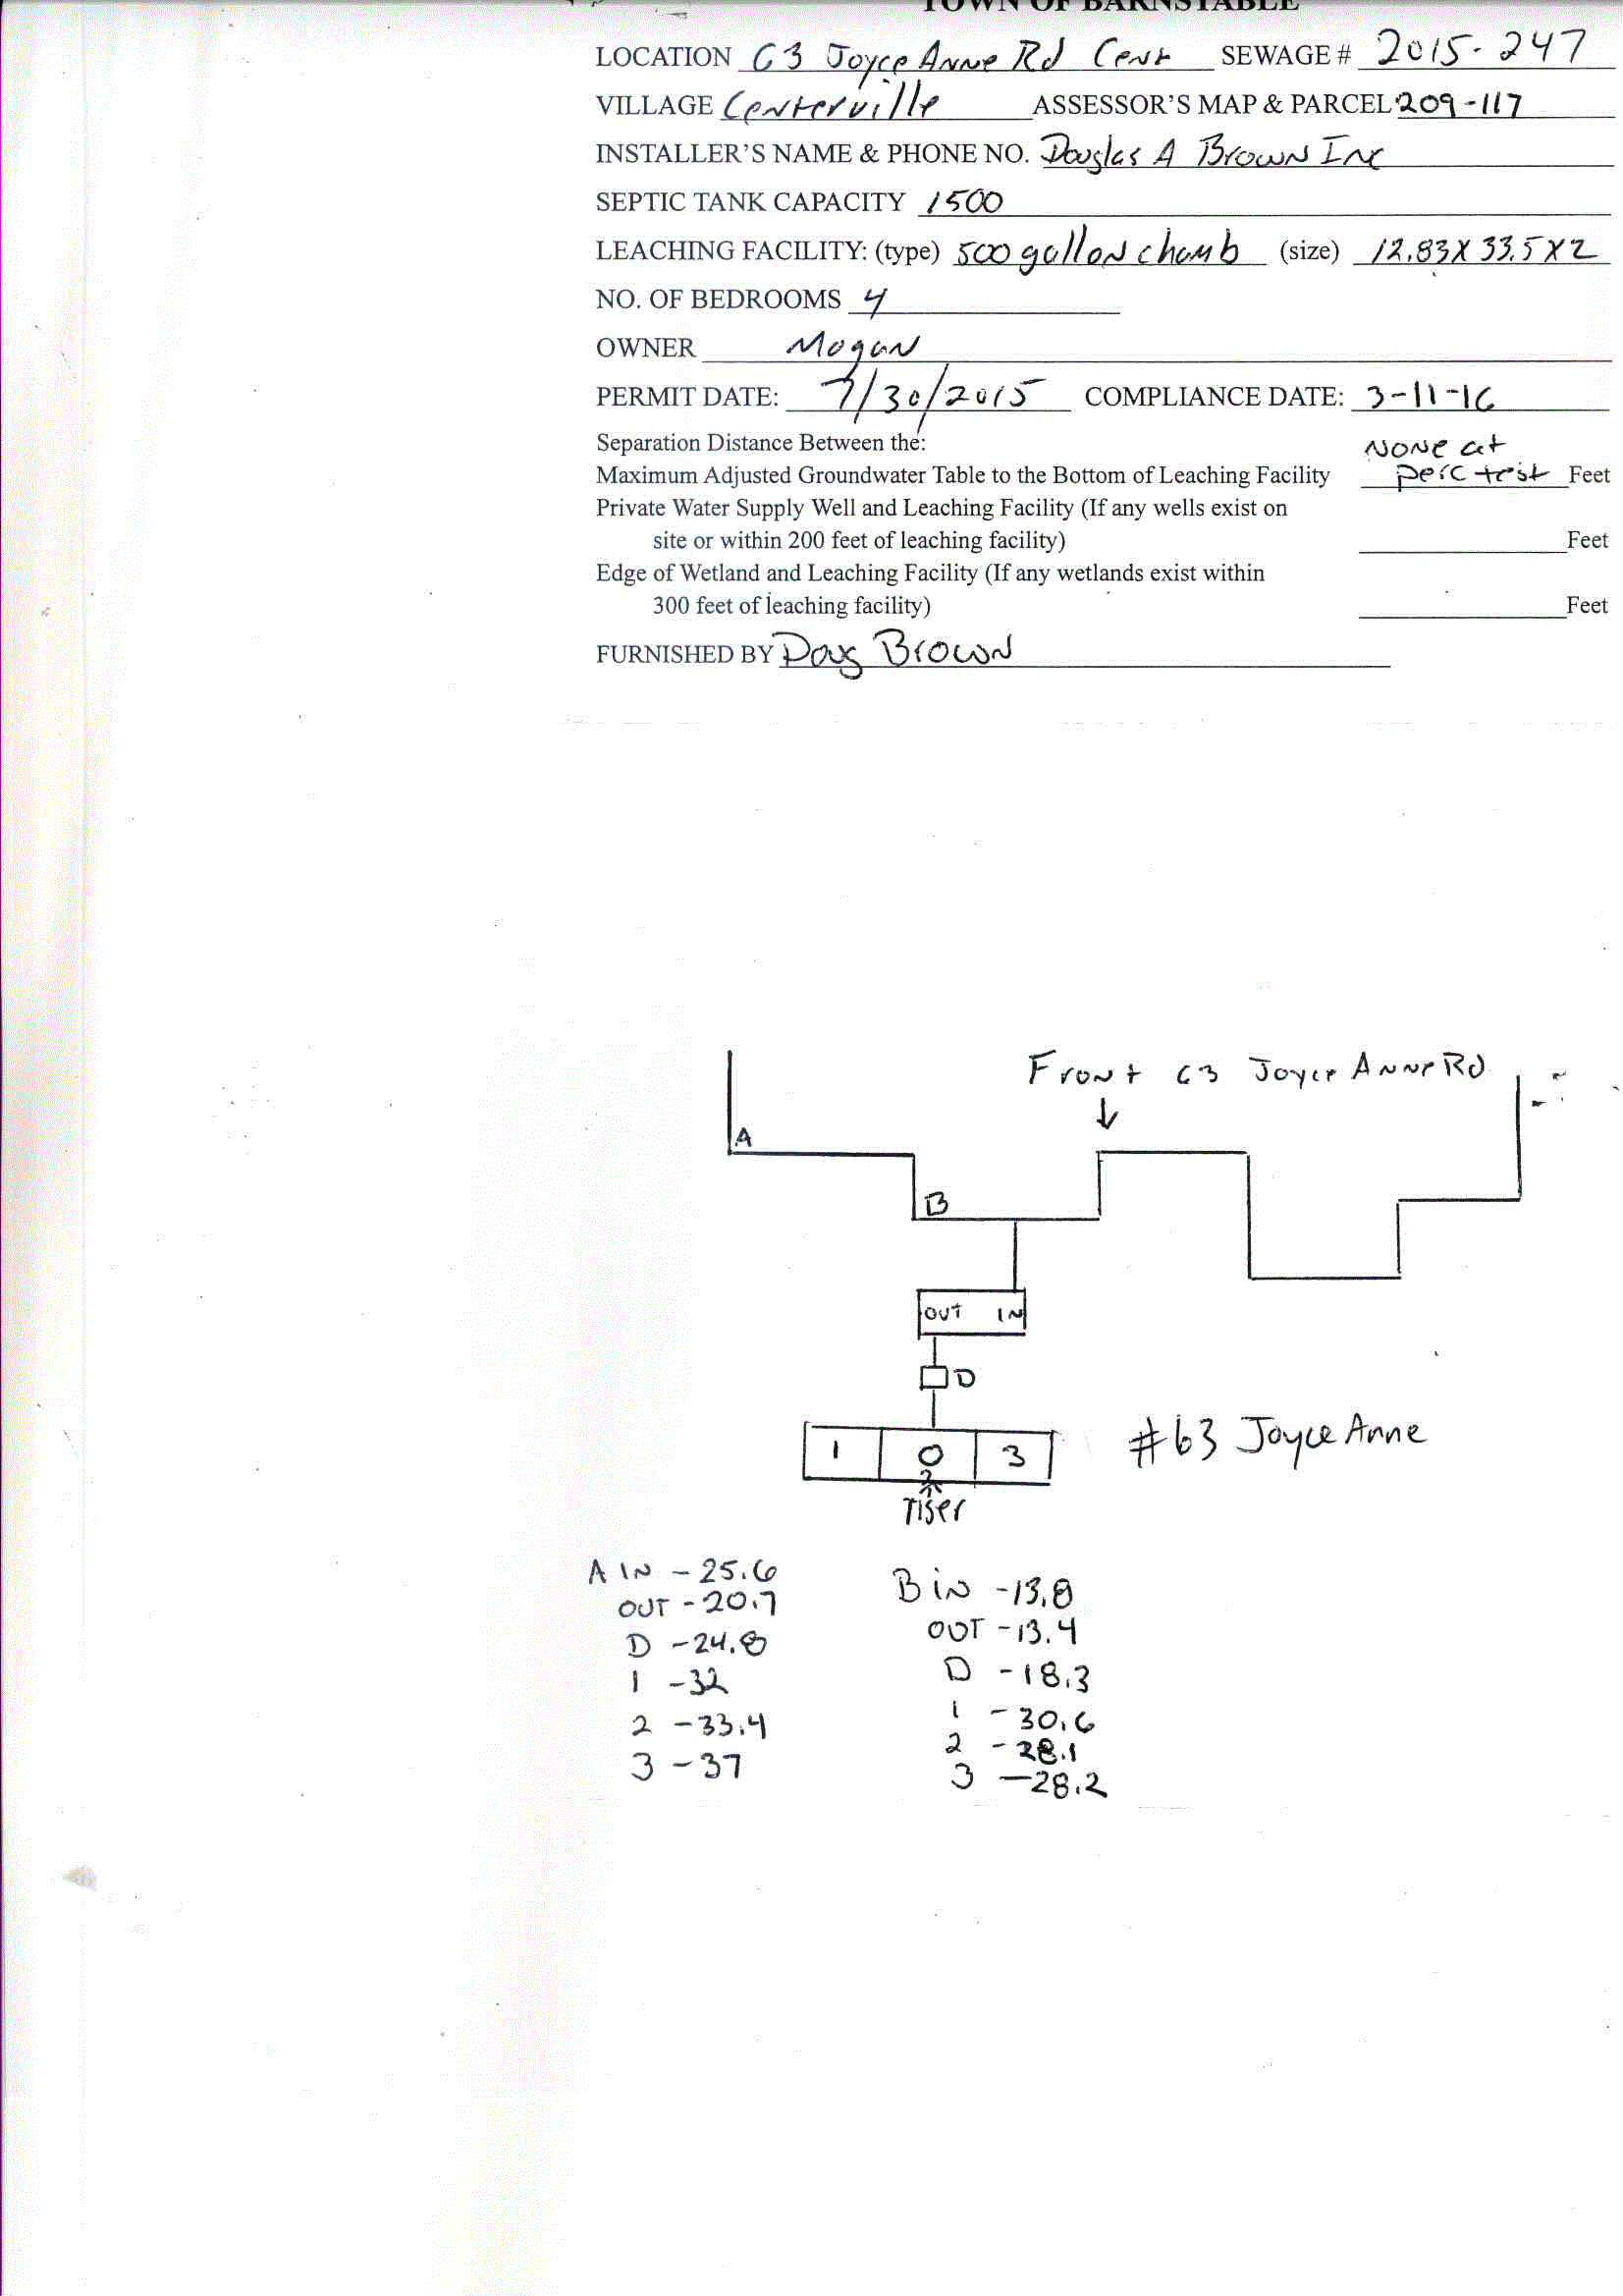 TOWN OF BARNSTABLE
LOCATION 63 Joyce Anne Rd Cent SEWAGE # 2015-247
VILLAGE Centerville ASSESSOR'S MAP & PARCEL 209-117
INSTALLER'S NAME & PHONE NO. Douglas A Brown Inc
SEPTIC TANK CAPACITY 1500
LEACHING FACILITY: (type) 500 gallon chamb (size) 12.83 X 33.5 X 2
NO. OF BEDROOMS 4
OWNER Mogan
PERMIT DATE: 7/30/2015 COMPLIANCE DATE: 3-11-16
Separation Distance Between the:
Maximum Adjusted Groundwater Table to the Bottom of Leaching Facility None at perc test Feet
Private Water Supply Well and Leaching Facility (If any wells exist on
site or within 200 feet of leaching facility) Feet
Edge of Wetland and Leaching Facility (If any wetlands exist within
300 feet of leaching facility) Feet
FURNISHED BY Doug Brown
Front 63 Joyce Anne Rd
A
B
OUT IN
D
1 O 3
2
#63 Joyce Anne
riser
A IN - 25.6
OUT - 20.7
D - 24.8
1 - 32
2 - 33.4
3 - 37
B IN - 13.8
OUT - 13.4
D - 18.3
1 - 30.6
2 - 28.1
3 - 28.2